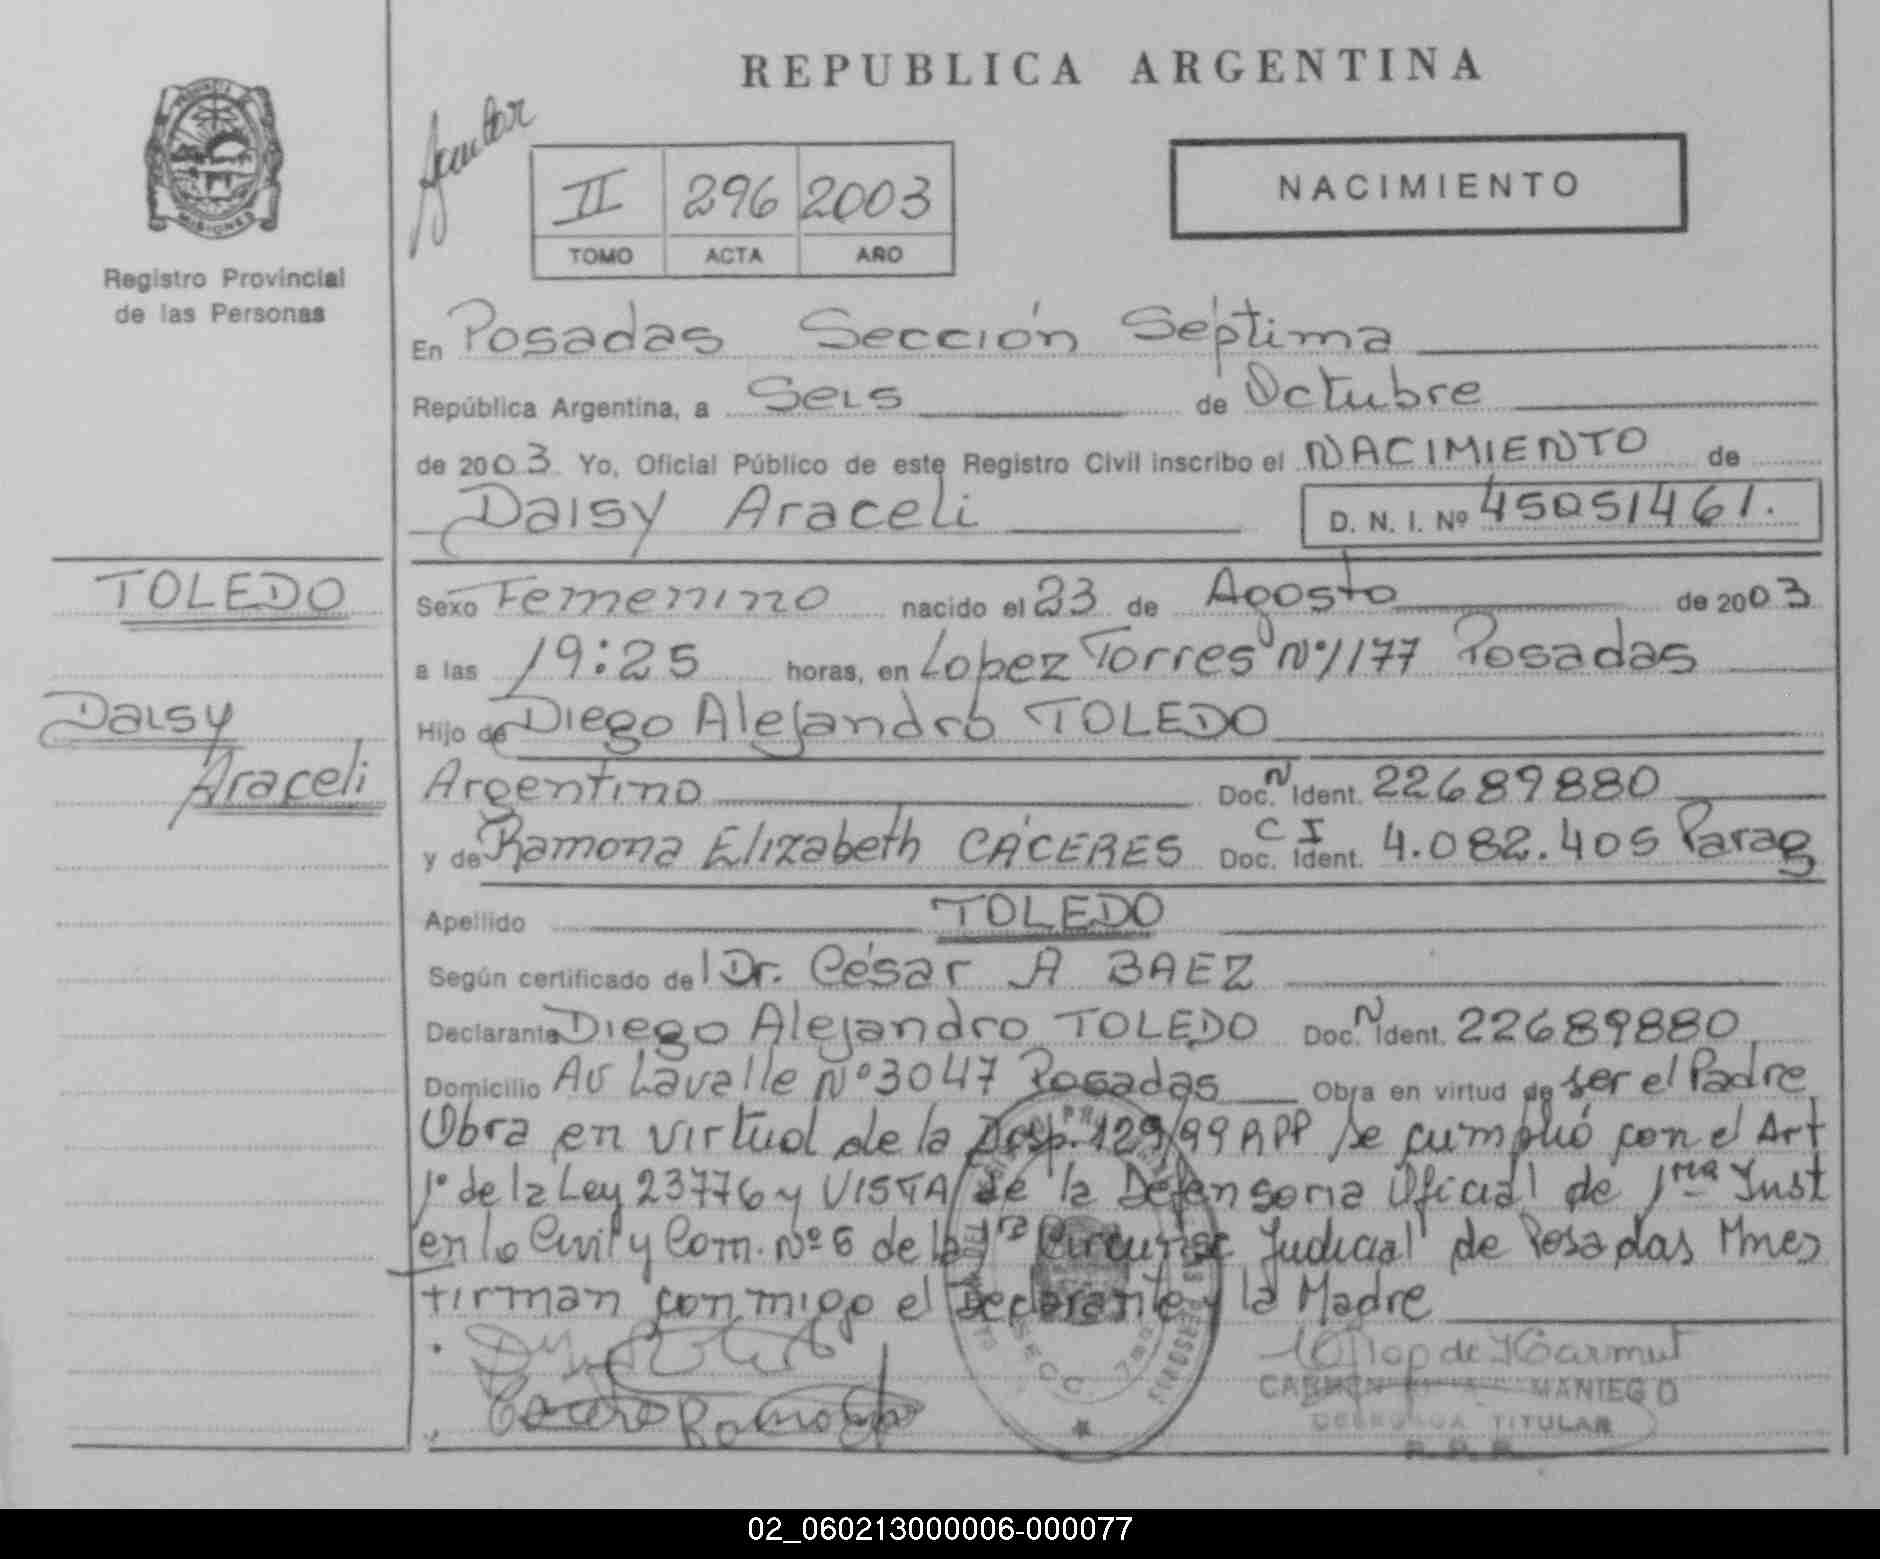 REPUBLICA ARGENTINA
PROVINCIA DE
MISIONES
Registro Provincial
de las Personas
II 296 2003
TOMO ACTA AÑO
NACIMIENTO
En Posadas Sección Séptima
República Argentina, a Seis de Octubre
de 2003 Yo, Oficial Público de este Registro Civil inscribo el NACIMIENTO de
Daisy Araceli D. N. I. Nº 45051461.
TOLEDO
Daisy
Araceli
Sexo Femenino nacido el 23 de Agosto de 2003
a las 19:25 horas, en Lopez Torres Nº 1177 Posadas
Hijo de Diego Alejandro TOLEDO
Argentino Doc. N Ident. 22689880
y de Ramona Elizabeth CÁCERES Doc. C I Ident. 4.082.405 Parag
Apellido TOLEDO
Según certificado de l Dr. César A BAEZ
Declarante Diego Alejandro TOLEDO Doc. N Ident. 22689880
Domicilio Av Lavalle Nº 3047 Posadas Obra en virtud de ser el Padre
Obra en virtud de la Disp. 129/99 APP se cumplió con el Art
1º de la Ley 23776 y VISTA de la Defensoria Oficial de 1ra Inst
en lo Civil y Com. Nº 6 de la 1ra Circunsc Judicial de Posadas Mnes
firman conmigo el Declarante y la Madre
SECC. 7ma
MANIEGO
TITULAR
02_060213000006-000077